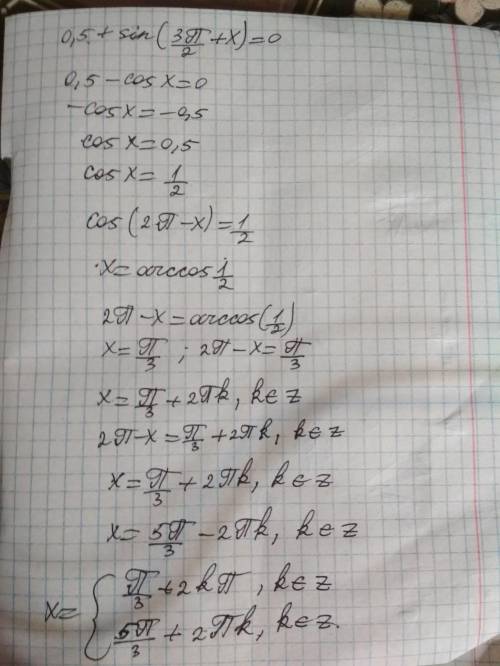 0,5 + sin(3π/2 + x) = 0
0,5 - cos x = 0
-cos x = -0,5
cos x = 0,5
cos x = 1/2
cos(2π - x) = 1/2
x = arccos 1/2
2π - x = arccos(1/2)
x = π/3 ; 2π - x = π/3
x = π/3 + 2πk, k ∈ z
2π - x = π/3 + 2πk, k ∈ z
x = π/3 + 2πk, k ∈ z
x = 5π/3 - 2πk, k ∈ z
x = { π/3 + 2kπ, k ∈ z
5π/3 + 2πk, k ∈ z.